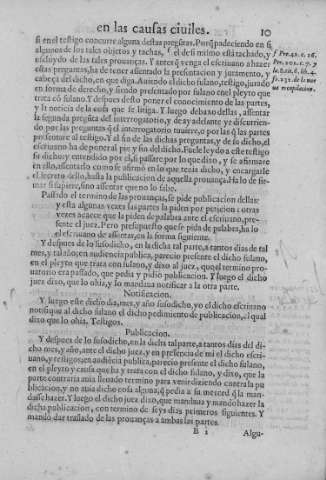 en las causas ciuiles. 10
si en el testigo concurre alguna destas preguntas. Porq̃ padeciendo en si
algunos de los tales objetos y tachas, el de si mismo está tachado, y
escluydo de las tales prouanças. Y antes q̃ venga el escriuano a hazer
estas preguntas, ha de tener assentado la presentacion y juramento, y
cabeça del dicho, en que diga. Auiendo el dicho fulano, testigo, jurado
en forma de derecho, y siendo presentado por fulano en el pleyto que
trata cõ fulano. Y despues desto poner el conocimiento de las partes,
y la noticia de la causa que se litiga. Y luego debaxo dellas, assentar
la segunda pregũta del interrogatorio, y de ay adelante yr discurriendo
por las preguntas q̃ el interrogatorio tuuiere, o por las q̃ las partes
presentare al testigo. Y al fin de las dichas preguntas, y de su dicho, el
escriuano ha de poner al pie y fin del dicho. Fuele leydo a este testigo
su dicho, y entendido por el, si passare por lo que dixo, y se afirmare
en ello, assentarlo como se afirmó en lo que tenia dicho, y encargarle
el secreto dello, hasta la publicacion de aquella prouança. Ha lo de firmar
si supiere, sino assentar que no lo sabe.
Passado el termino de las prouanças, se pide publicacion dellas:
y esta algunas vezes las partes la piden por peticion: otras
vezes acaece que la piden de palabra ante el escriuano, presente
el juez. Pero presupuesto que se pida de palabra, ha lo
el escriuano de assentar, en la forma siguiente.
Y despues de lo susodicho, en la dicha tal parte, a tantos dias de tal
mes, y tal año, en audiencia publica, parecio presente el dicho fulano,
en el pleyto que trata con fulano, y dixo al juez, que el termino prouatorio
era passado, que pedia y pidio publicacion. Y luego el dicho
juez dixo, que lo ohia, y lo mandaua notificar a la otra parte.
Notificacion.
Y luego este dicho dia, mes, y año susodicho, yo el dicho escriuano
notifiquè al dicho fulano el dicho pedimiento de publicacion, el qual
dixo que lo ohia. Testigos.
Publicacion.
Y despues de lo susodicho, en la dicha tal parte, a tantos dias del dicho
mes, y año, ante el dicho juez, y en presencia de mi el dicho escriuano,
y testigos en audiencia publica, parecio presente el dicho fulano,
en el pleyto y causa que ha y trata con el dicho fulano, y dixo, que la
parte contraria auia lleuado termino para venir diziendo contra la publicacion,
y no auia dicho cosa alguna, q̃ pedia a su merced q̃ la mandasse
hazer. Y luego el dicho juez dixo, que mandaua y mandò hazer la
dicha publicacion, con termino de seys dias primeros siguientes. Y
mandò dar traslado de las prouanças a ambas las partes.
B 2 Algu-